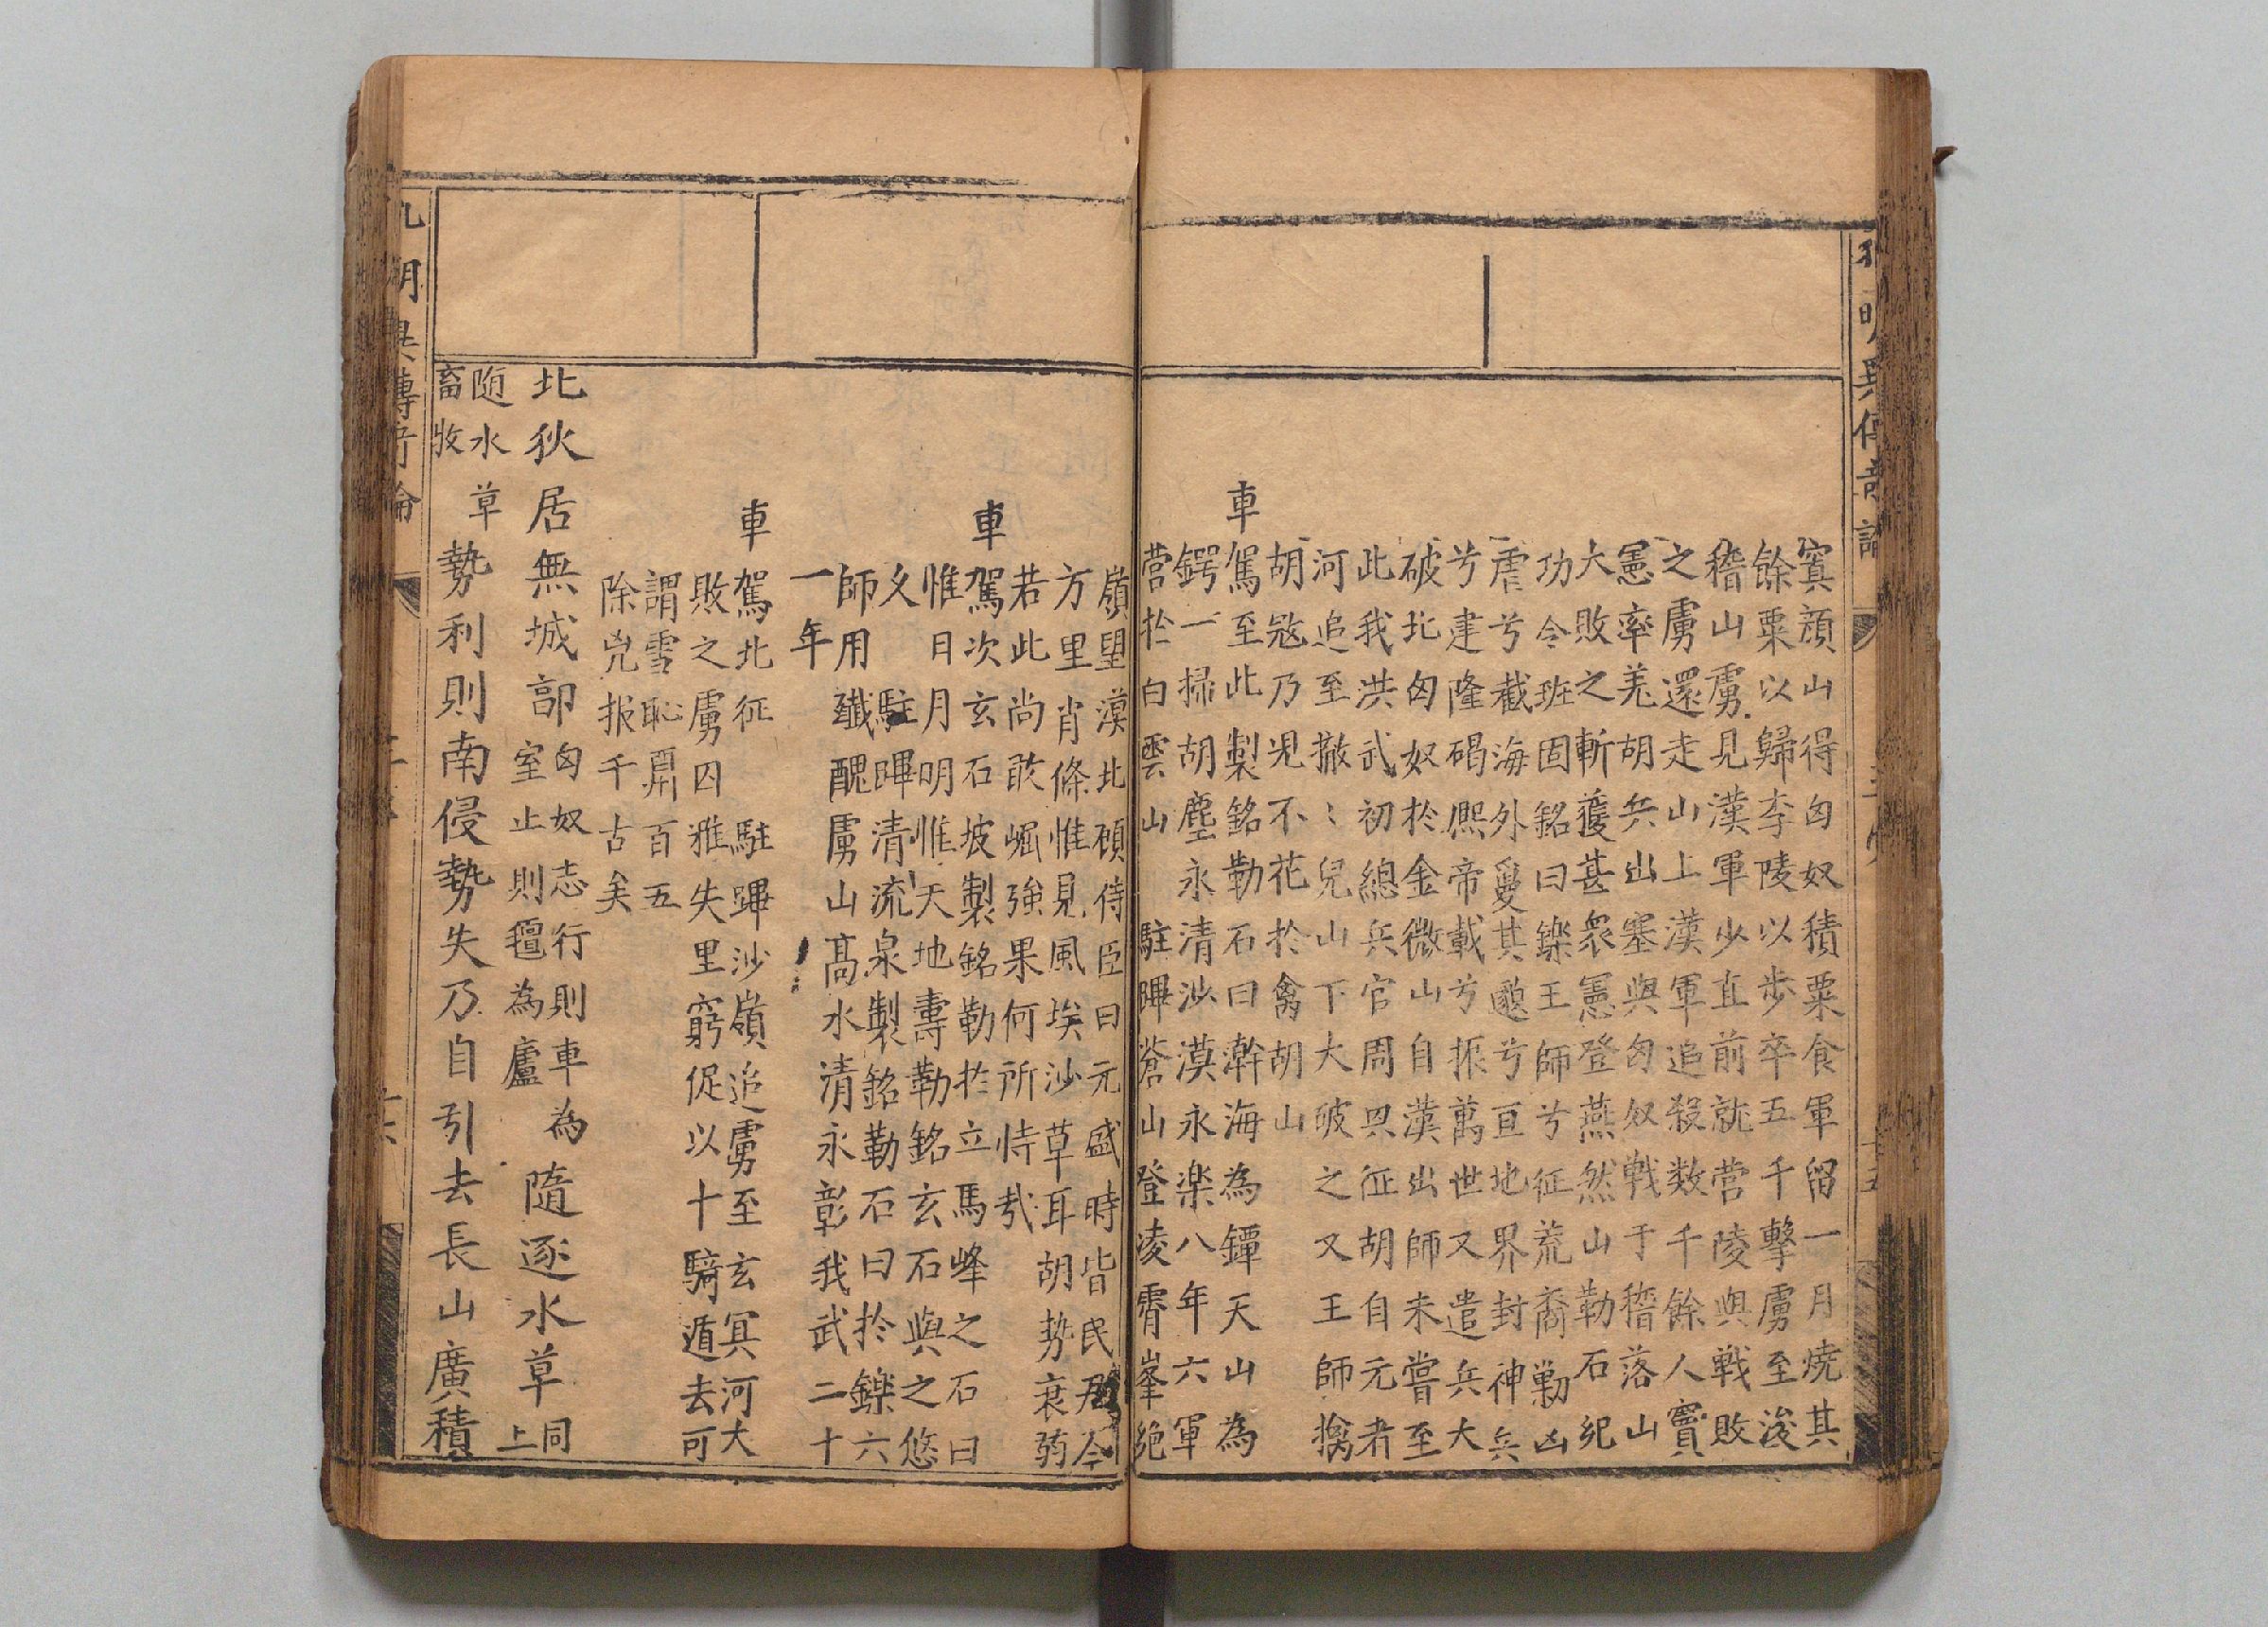 寘顔山得匈奴積粟食軍留一月焼其
餘粟以歸李陵以歩卒五千擊虜至浚
稽山虜見漢軍少直前就营陵與戦敗
之虜還走山上漢軍追殺数千餘人竇
憲率羌胡兵出塞與匈奴戦于稽落山
大敗之斬獲甚衆憲登燕然山勒石紀
功令班固銘曰鑠王師兮征荒裔勦凶
虐兮截海外夐其邈兮亘地界封神兵
兮建隆碣熈帝載兮振萬世又遣兵大
破北匈奴於金微山自漢出師未嘗至
此我洪武初總兵官周興征胡自元者
河追至撤〻兒山下大破之又王師擒
胡寇乃児不花於禽胡山
車駕至此製銘勒石曰瀚海為鐔天山為
鍔一掃胡塵永清沙漠永楽八年六軍
营於白雲山　駐蹕蒼山登凌霄峯絶
嶺望漠北碩侍臣曰元盛時皆民居今
方里肖條惟見風埃沙草耳胡势衰弱
若此尚敢崛強果何所恃㢤
車駕次玄石坡製銘勒於立馬峰之石曰
惟日月明惟天地壽勒銘玄石與之悠
久　駐蹕清流泉製銘勒石曰於鑠六
師用殲醜虜山髙水清永彰我武二十
一年
車駕北征　駐蹕沙嶺追虜至玄冥河大
敗之虜囚雅失里窮促以十騎遁去可
謂雪恥百五
除兇报千古矣
北狄居無城郭匈奴志行則車為室止則氊為廬隨逐水草同上
随水草畜牧
勢利則南侵勢失乃自引去長山廣積